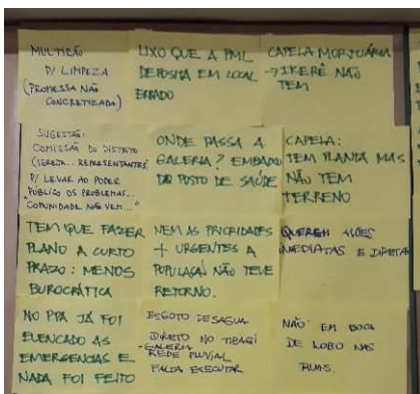 MUTIRÃO
P/ LIMPEZA
(PROMESSA NÃO
CONCRETIZADA)
LIXO QUE A PML
DEPOSITA EM LOCAL
ERRADO
CAPELA MORTUÁRIA
→ IRERÊ NÃO
TEM
SUGESTÃO:
COMISSÃO DO DISTRITO
(IGREJA.. REPRESENTANTES)
P/ LEVAR AO PODER
PÚBLICO OS PROBLEMAS..
"COMUNIDADE NÃO VEM..."
ONDE PASSA A
GALERIA? EMBAIXO
DO POSTO DE SAÚDE
CAPELA:
TEM PLANTA MAS
NÃO TEM
TERRENO
TEM QUE FAZER
PLANO A CURTO
PRAZO: MENOS
BUROCRÁTICA
NEM AS PRIORIDADES
+ URGENTES A
POPULAÇÃO NÃO TEVE
RETORNO.
QUEREM AÇÕES
IMEDIATAS E DIRETAS
NO PPA JÁ FOI
ELENCADO AS
EMERGENCIAS E
NADA FOI FEITO
ESGOTO DESAGUA
DIRETO NO TIBAGI
- GALERIA
REDE PLUVIAL
FALTA EXECUTAR
NÃO EM BOCA
DE LOBO NAS
RUAS.